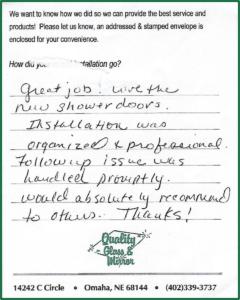 We want to know how we did so we can provide the best service and
products! Please let us know, an addressed & stamped envelope is
enclosed for your convenience.
How did installation go?
Great job! Love the
new shower doors.
Installation was
organized & professional.
Followup issue was
handled promptly.
Would absolutely recommend
to others. Thanks!
Quality
Glass &
Mirror
14242 C Circle • Omaha, NE 68144 • (402)339-3737